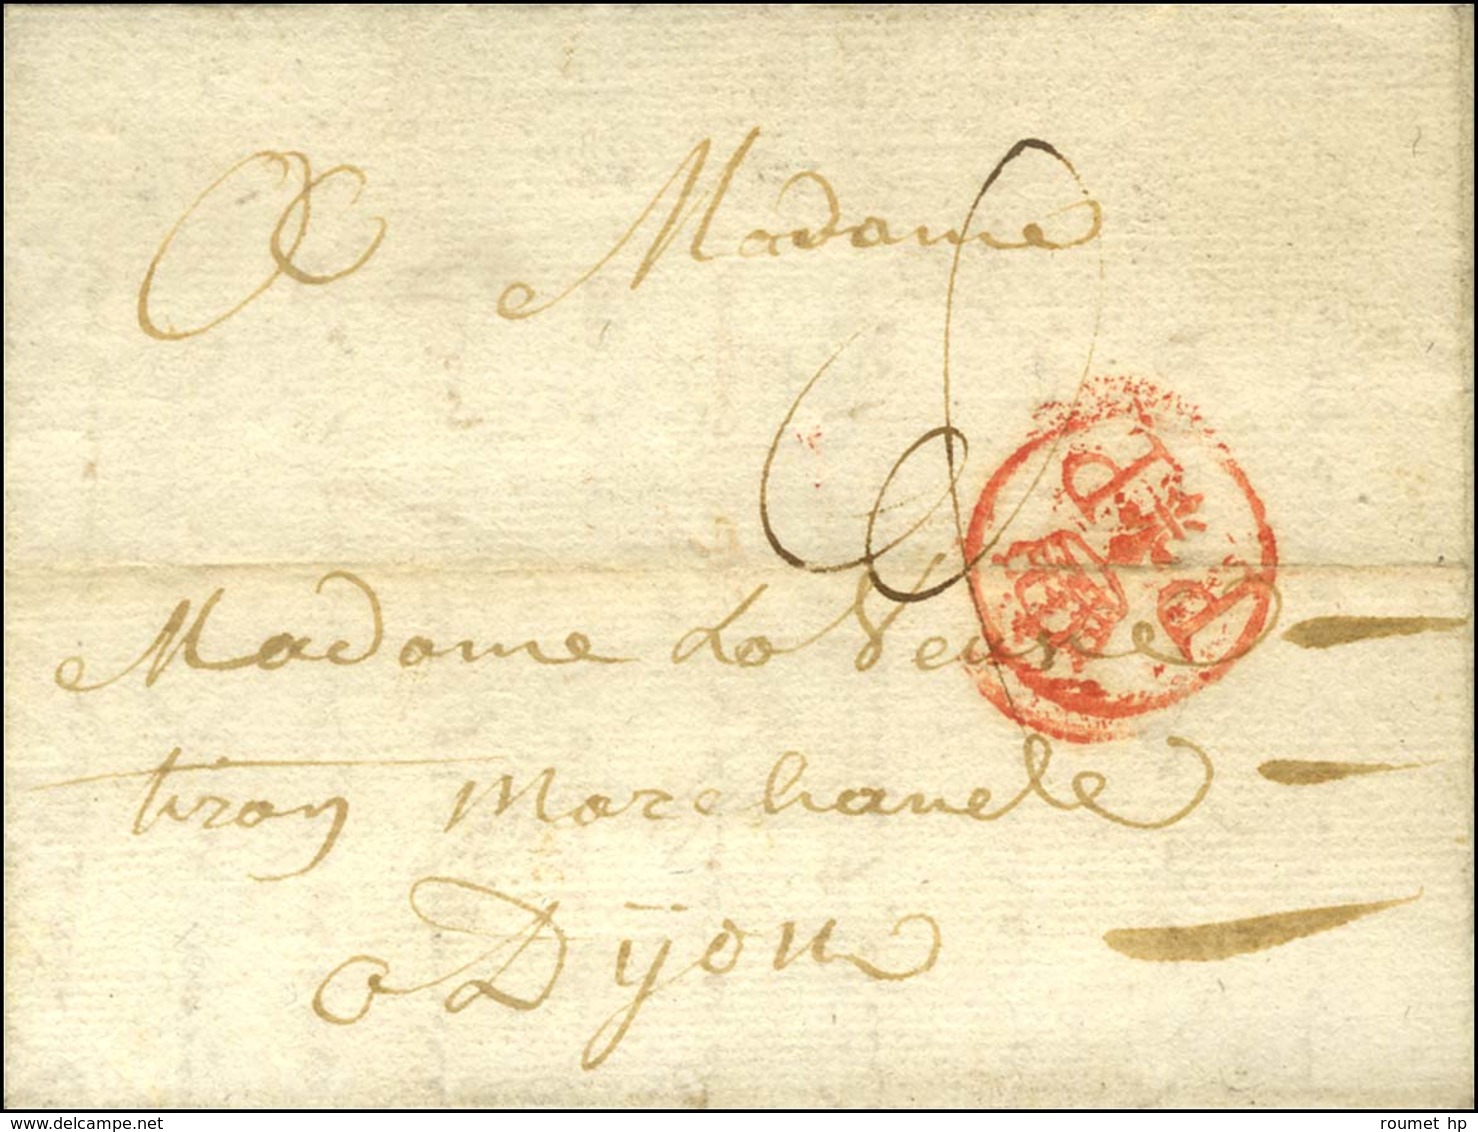 A Madame
P P
Madame La Veuve
tiron Marchande
a Dijon
delcampe.net
roumet hp